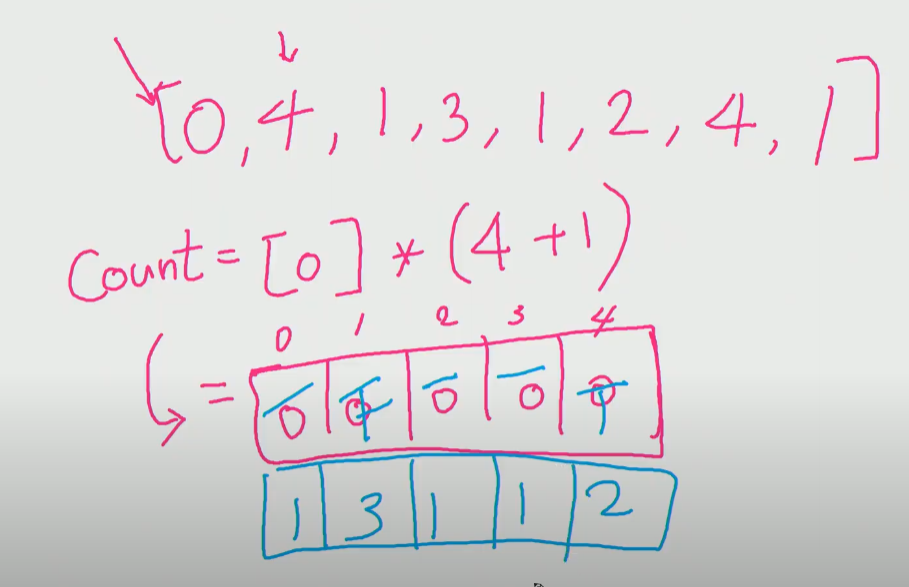 [0, 4, 1, 3, 1, 2, 4, 1]
Count = [0] * (4+1)
0 1 2 3 4
= 0 0 0 0 0
1 3 1 1 2